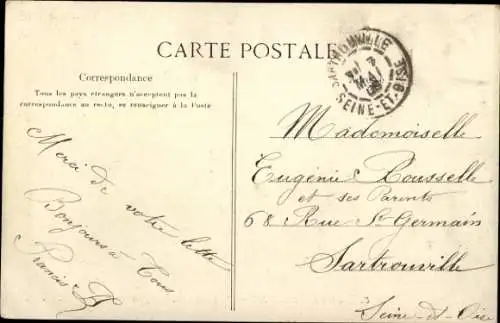 CARTE POSTALE
Correspondance
Tous les pays étrangers n'acceptent pas la
correspondance au recto, se renseigner à la Poste
Merci de votre lettre
Bonjours à Tous
Francis
SARTROUVILLE
7
MAI
SEINE-ET-OISE
Mademoiselle
Eugénie Rousselle
et ses Parents
68 Rue St Germain
Sartrouville
Seine-et-Oise